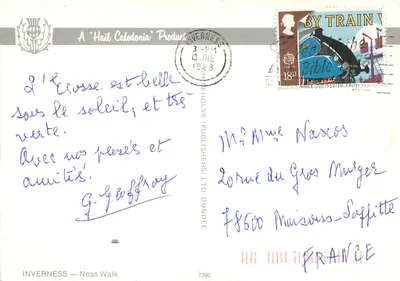 A "Hail Caledonia" Product
INVERNESS
3-PM
JUNE
BY TRAIN
18P
L'Ecosse est belle
sous le soleil, et très
verte.
Avec nos pensées et
amitiés.
G. Geoffroy
(PUBLISHERS) LTD DUNDEE
Mr Mme Naxos
20 rue du Gros Murger
78600 Maisons-Laffitte
FRANCE
INVERNESS — Ness Walk